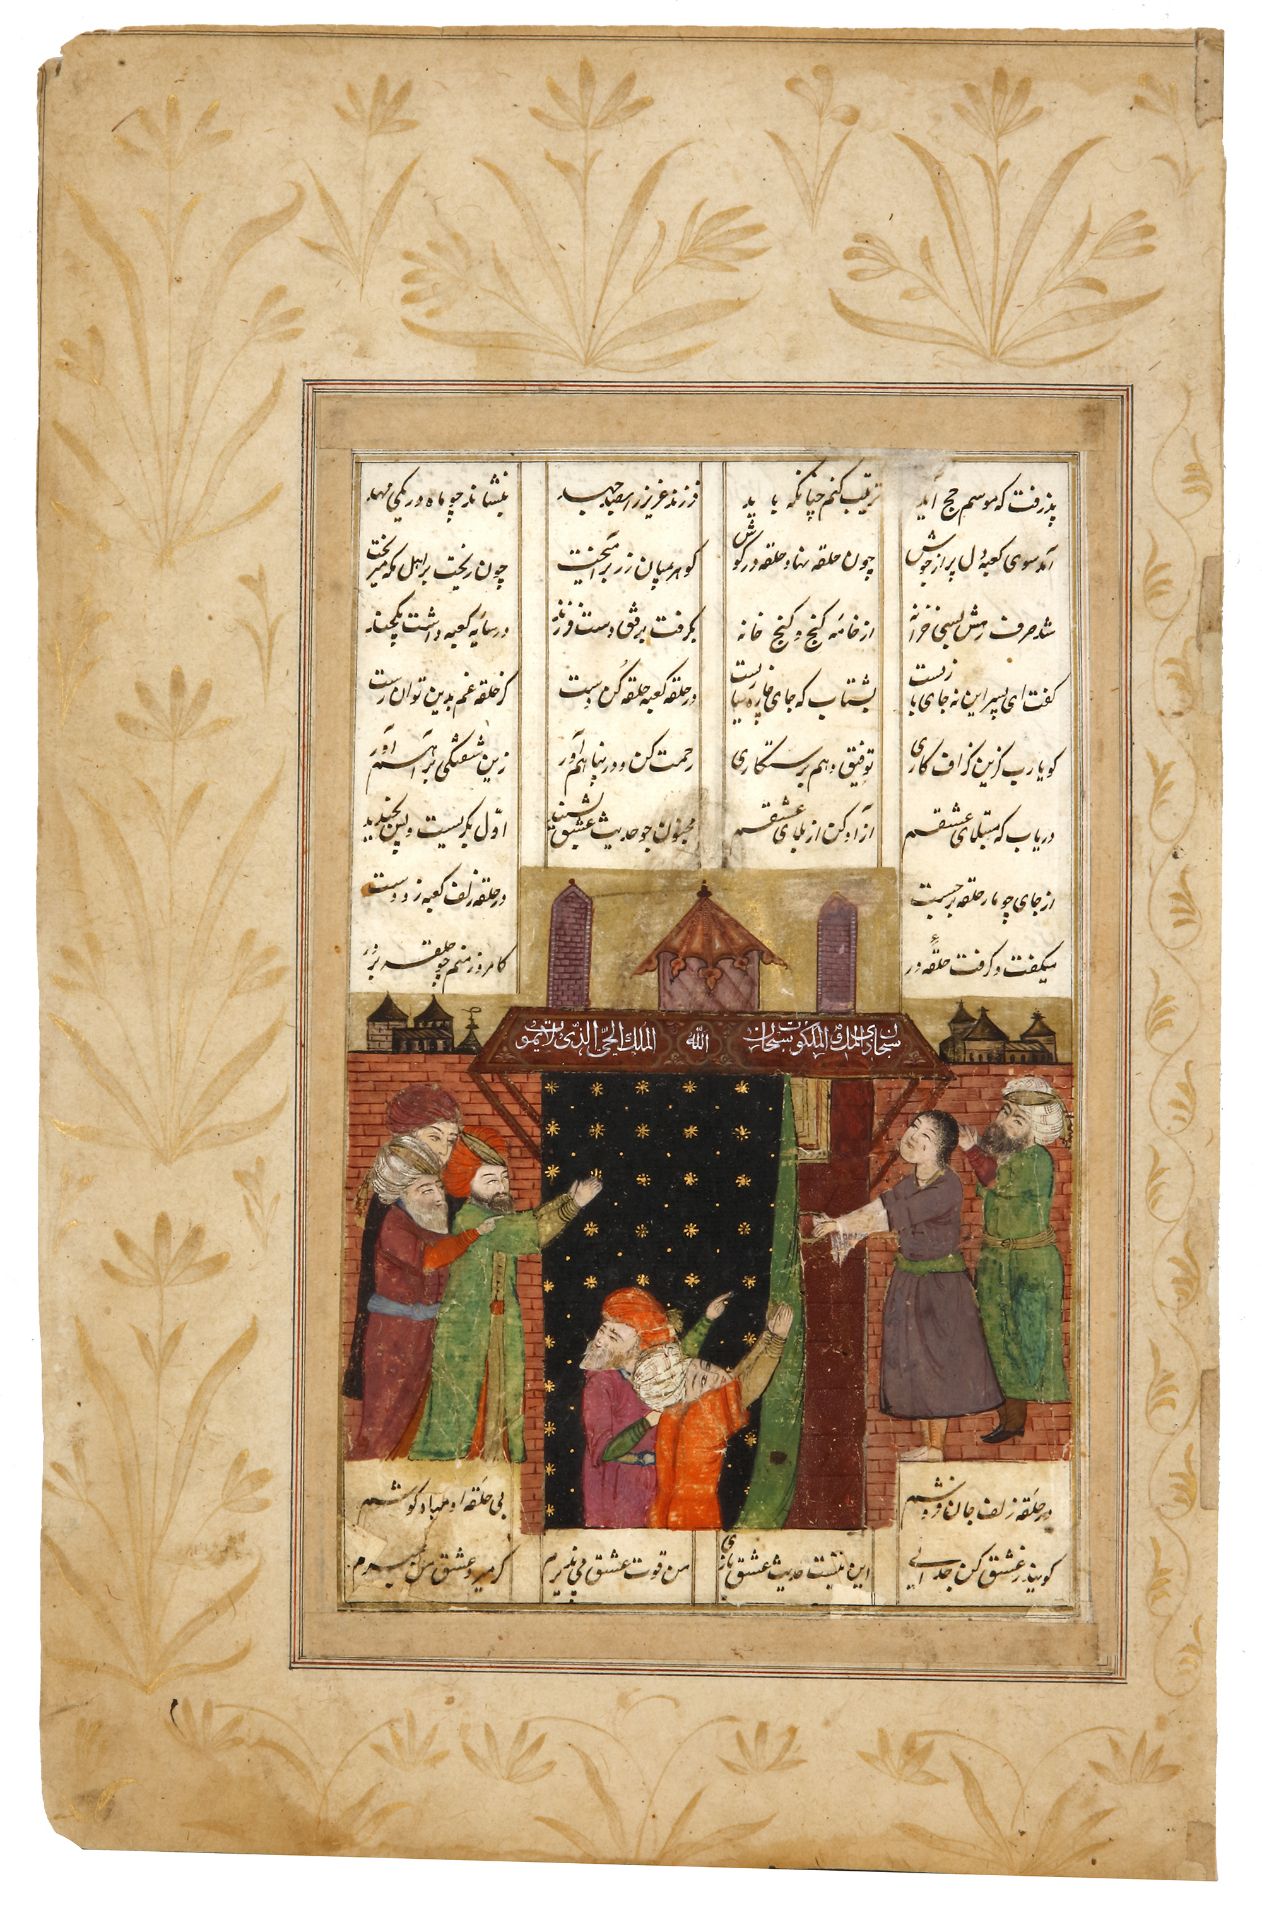 پذرفت که موسم حج آید ترتیب کنم چنانکه باید فرزند عزیز را بصد جهد بنشاند چو ماه در یکی مهد
آمد سوی کعبه دل پر از جوش چون حلقه نهاد حلقه در گوش گوهر بمیان زر برآمیخت چون ریخت بر اهل مکه میریخت
شد صرف رهش بسی خزانه از خامه گنج و گنج خانه بگرفت برفق دست فرزند در سایه کعبه داشت یکچند
گفت ای پسر این نه جای بازیست بشتاب که جای چاره در حلقه کعبه حلقه کن دست کز حلقه غم بدین توان رست
گو یارب کزین گزاف کاری توفیق دهم برستکاری رحمت کن و در پناهم آور زین شیفتگی براهم آور
دریاب که مبتلای عشقم آزاد کن از بلای عشقم مجنون چو حدیث عشق بشنید اوّل بگریست و پس بخندید
از جای چو مار حلقه برجست در حلقه زلف کعبه زد دست
میگفت و گرفت حلقه در کامروز منم چو حلقه بر در
سبحان ذی الملک الملکوت سبحان الله الملک الحی الذی لا یموت
در حلقه زلف جان فروشم بی حلقه او مباد گوشم
گویند ز عشق کن جدایی این نیست حدیث عشق بازی من قوت عشق می پذیرم گر میرد عشق من بمیرم